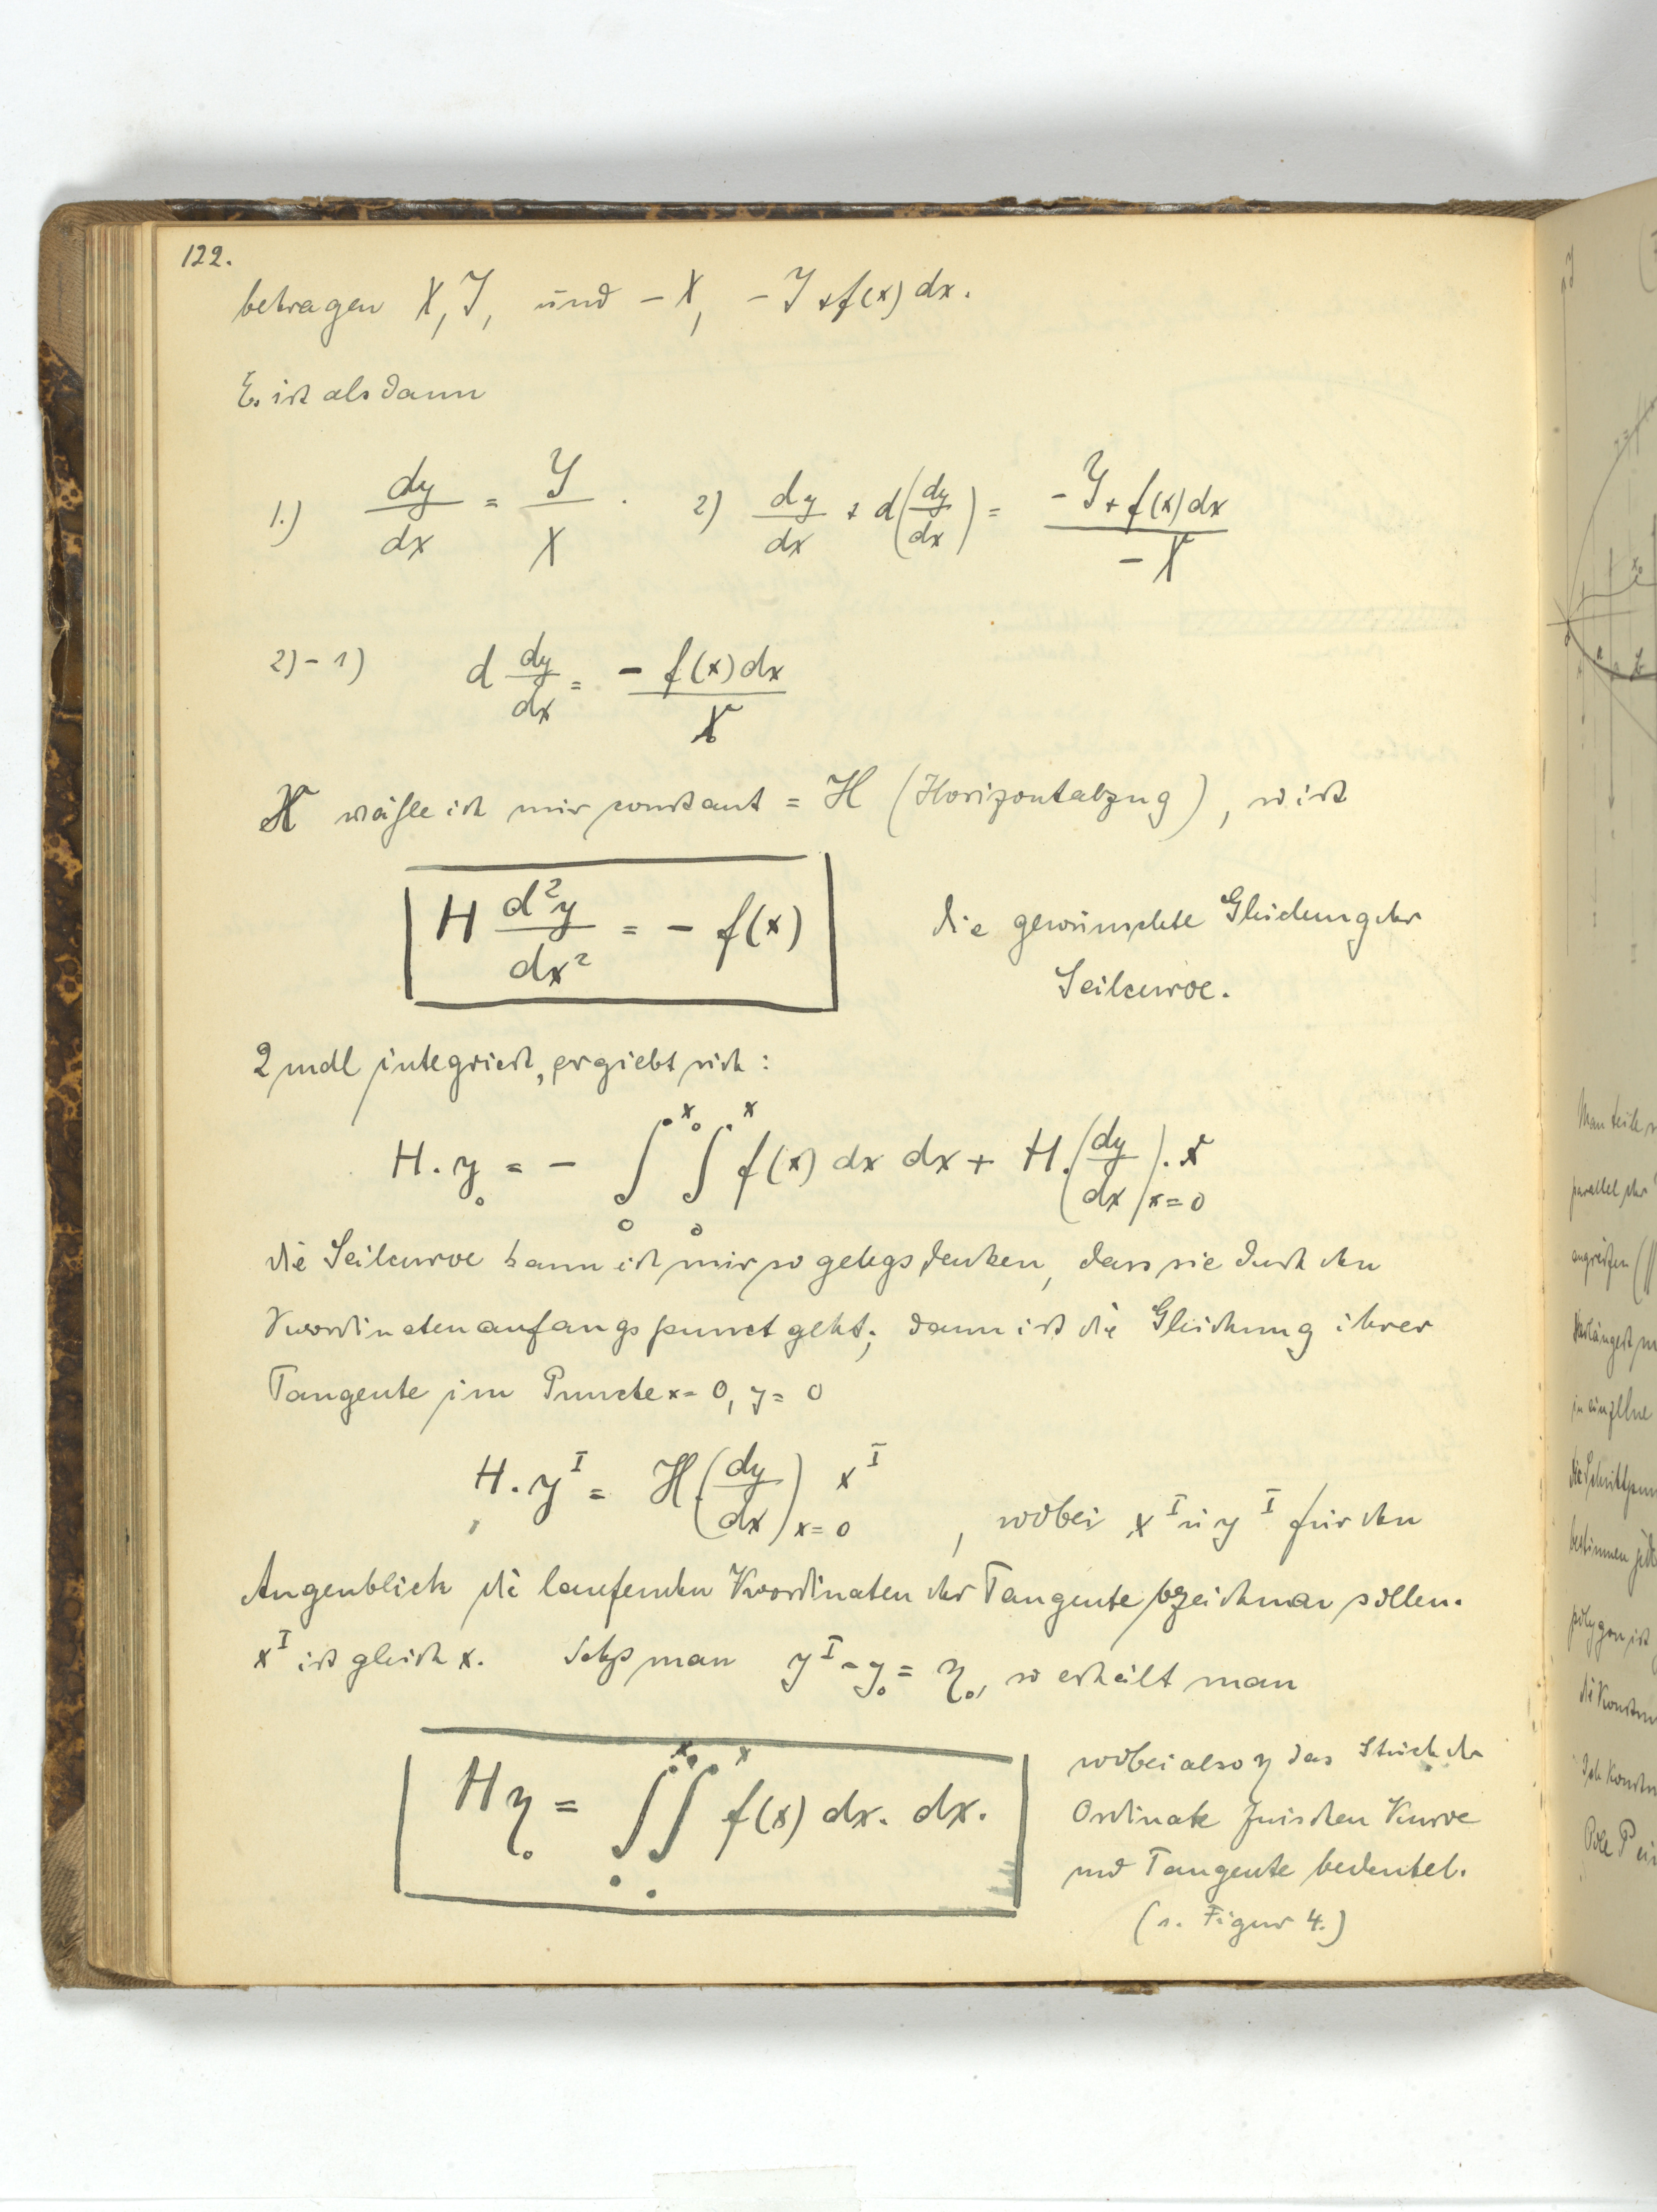 122.
betragen X, Y, und - X, - Y + f(x) dx.
Es ist alsdann
1.) dy/dx = Y/X . 2) dy/dx + d(dy/dx) = (- Y + f(x) dx)/(- X)
2) - 1) d dy/dx = - f(x) dx / X
X wähle ich mir constant = H (Horizontalzug), so ist
H d²y/dx² = - f(x) die gewünschte Gleichung der
Seilcurve.
2 mal integriert, ergiebt sich:
H . y₀ = - ∫₀^x₀ ∫₀^x f(x) dx dx + H . (dy/dx)x=0 . x
die Seilcurve kann ich mir so gelegt denken, dass sie durch den
Koordinatenanfangspunct geht; dann ist die Gleichung ihrer
Tangente im Puncte x = 0, y = 0
H . y^I = H . (dy/dx)x=0 x^I , wobei x^I u y^I für den
Augenblick die laufenden Koordinaten der Tangente bezeichnen sollen.
x^I ist gleich x. Setzt man y^I - y₀ = η₀, so erhält man
H η₀ = ∫₀^x₀ ∫₀^x f(x) dx . dx . wobei also η das Stück der
Ordinate zwischen Kurve
und Tangente bedeutet.
(s. Figur 4.)
Man teile
parallel der
angreifen
in einzelne
die Schnittpun
bestimmen
polygon ist
die Konstru
Pole P